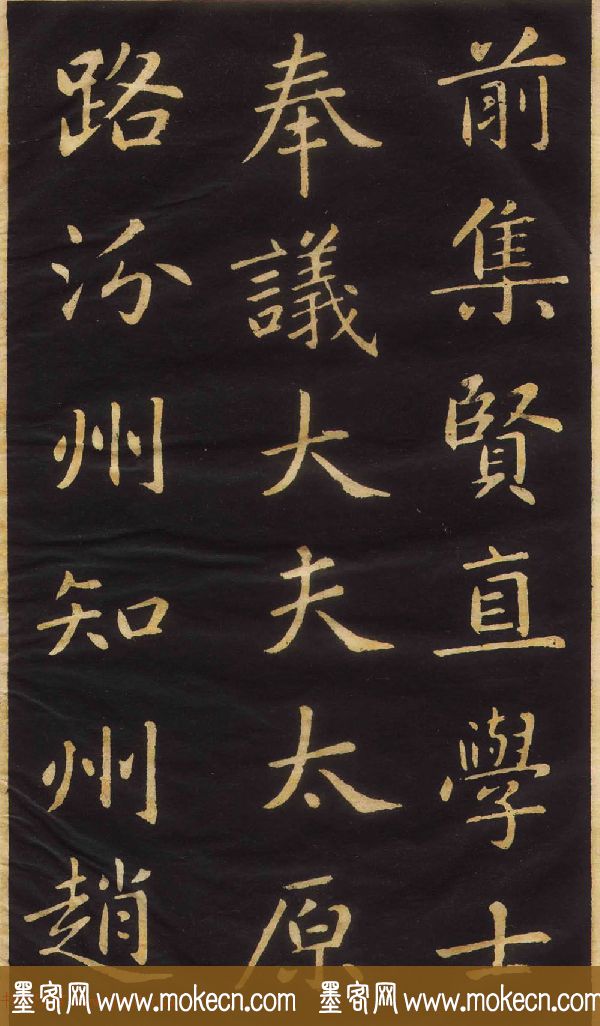 前集賢直學士
奉議大夫太原
路汾州知州趙
墨客网 www.mokecn.com 墨客网 www.mokecn.com